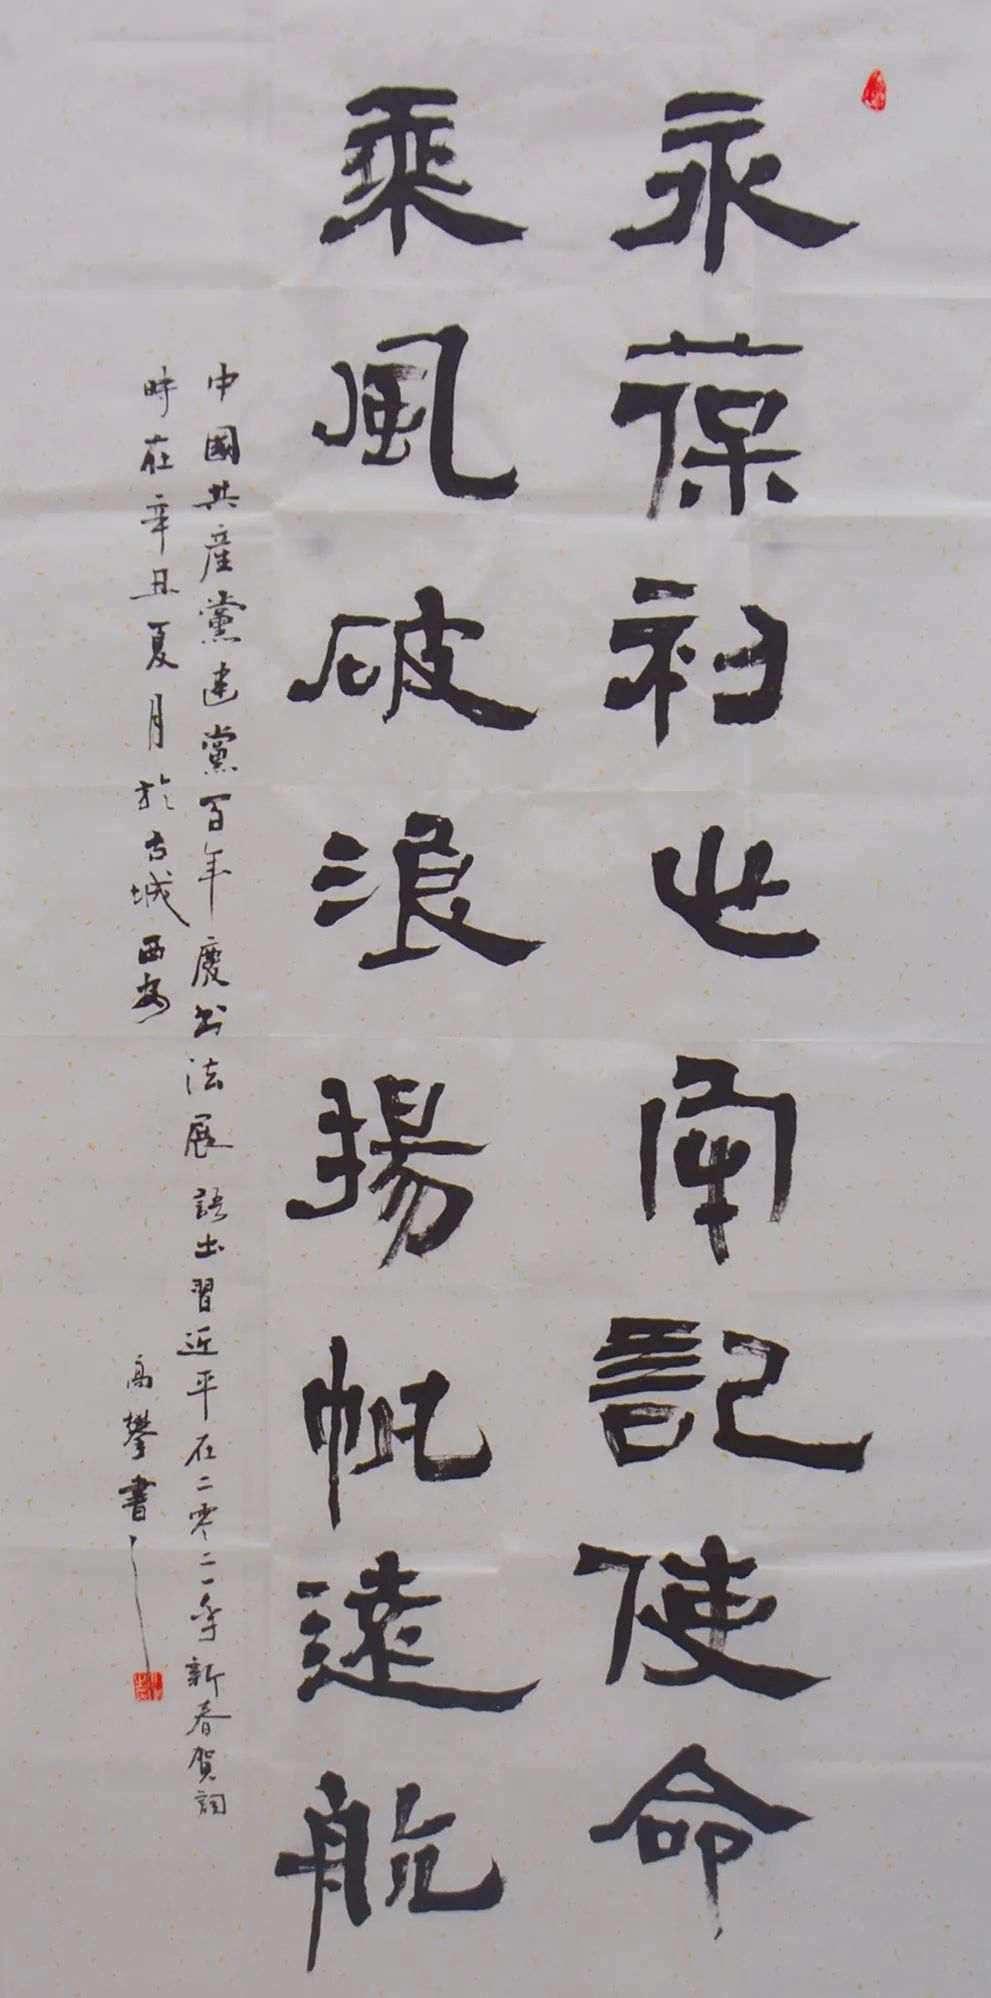 永葆初心牢記使命
乘風破浪揚帆遠航
中國共產黨建黨百年慶书法展 語出習近平在二零二一年新春贺詞
時在辛丑夏月於古城西安 高攀書